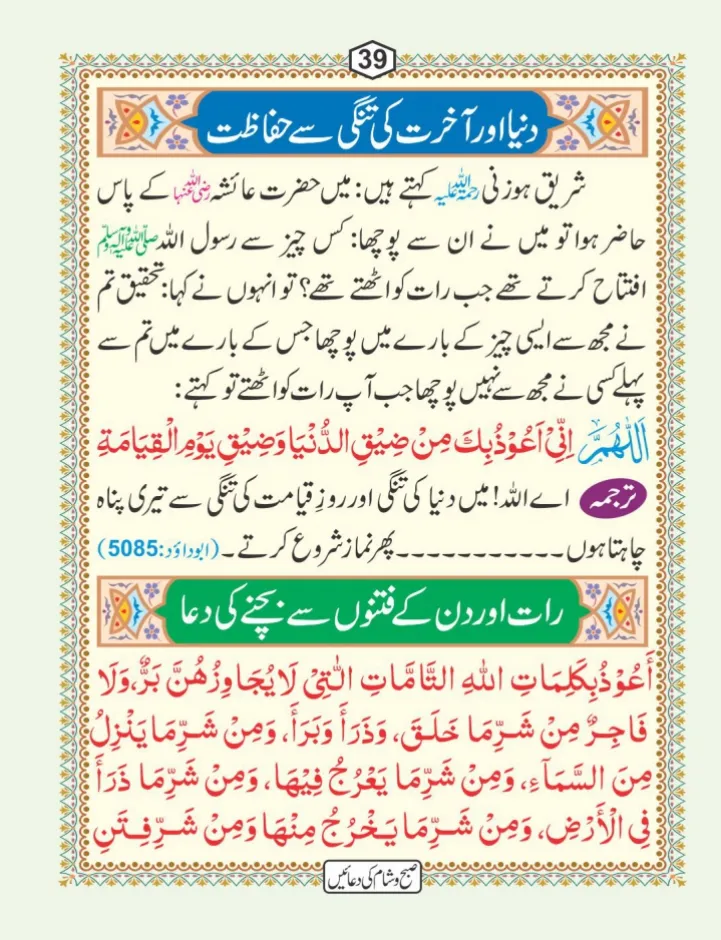 39
دنیا اور آخرت کی تنگی سے حفاظت
شریق ہوزنی رحمۃ اللہ علیہ کہتے ہیں: میں حضرت عائشہ رضی اللہ عنہا کے پاس
حاضر ہوا تو میں نے ان سے پوچھا: کس چیز سے رسول اللہ صلی اللہ علیہ وآلہ وسلم
افتتاح کرتے تھے جب رات کو اٹھتے تھے؟ تو انہوں نے کہا: تحقیق تم
نے مجھ سے ایسی چیز کے بارے میں پوچھا جس کے بارے میں تم سے
پہلے کسی نے مجھ سے نہیں پوچھا جب آپ رات کو اٹھتے تو کہتے:
اَللّٰهُمَّ اِنِّیْ اَعُوْذُ بِكَ مِنْ ضِیْقِ الدُّنْیَا وَضِیْقِ یَوْمِ الْقِیَامَةِ
ترجمہ اے اللہ! میں دنیا کی تنگی اور روزِ قیامت کی تنگی سے تیری پناہ
چاہتا ہوں ۔۔۔۔۔۔۔۔۔۔۔ پھر نماز شروع کرتے ۔ (ابوداؤد: 5085)
رات اور دن کے فتنوں سے بچنے کی دعا
أَعُوْذُ بِكَلِمَاتِ اللهِ التَّامَّاتِ الَّتِیْ لَا یُجَاوِزُهُنَّ بَرٌّ، وَلَا
فَاجِرٌ مِنْ شَرِّ مَا خَلَقَ، وَذَرَأَ وَبَرَأَ، وَمِنْ شَرِّ مَا یَنْزِلُ
مِنَ السَّمَآءِ، وَمِنْ شَرِّمَا یَعْرُجُ فِیْهَا، وَمِنْ شَرِّمَا ذَرَأَ
فِی الْأَرْضِ، وَمِنْ شَرِّمَا یَخْرُجُ مِنْهَا وَمِنْ شَرِّ فِتَنِ
صبح و شام کی دعائیں